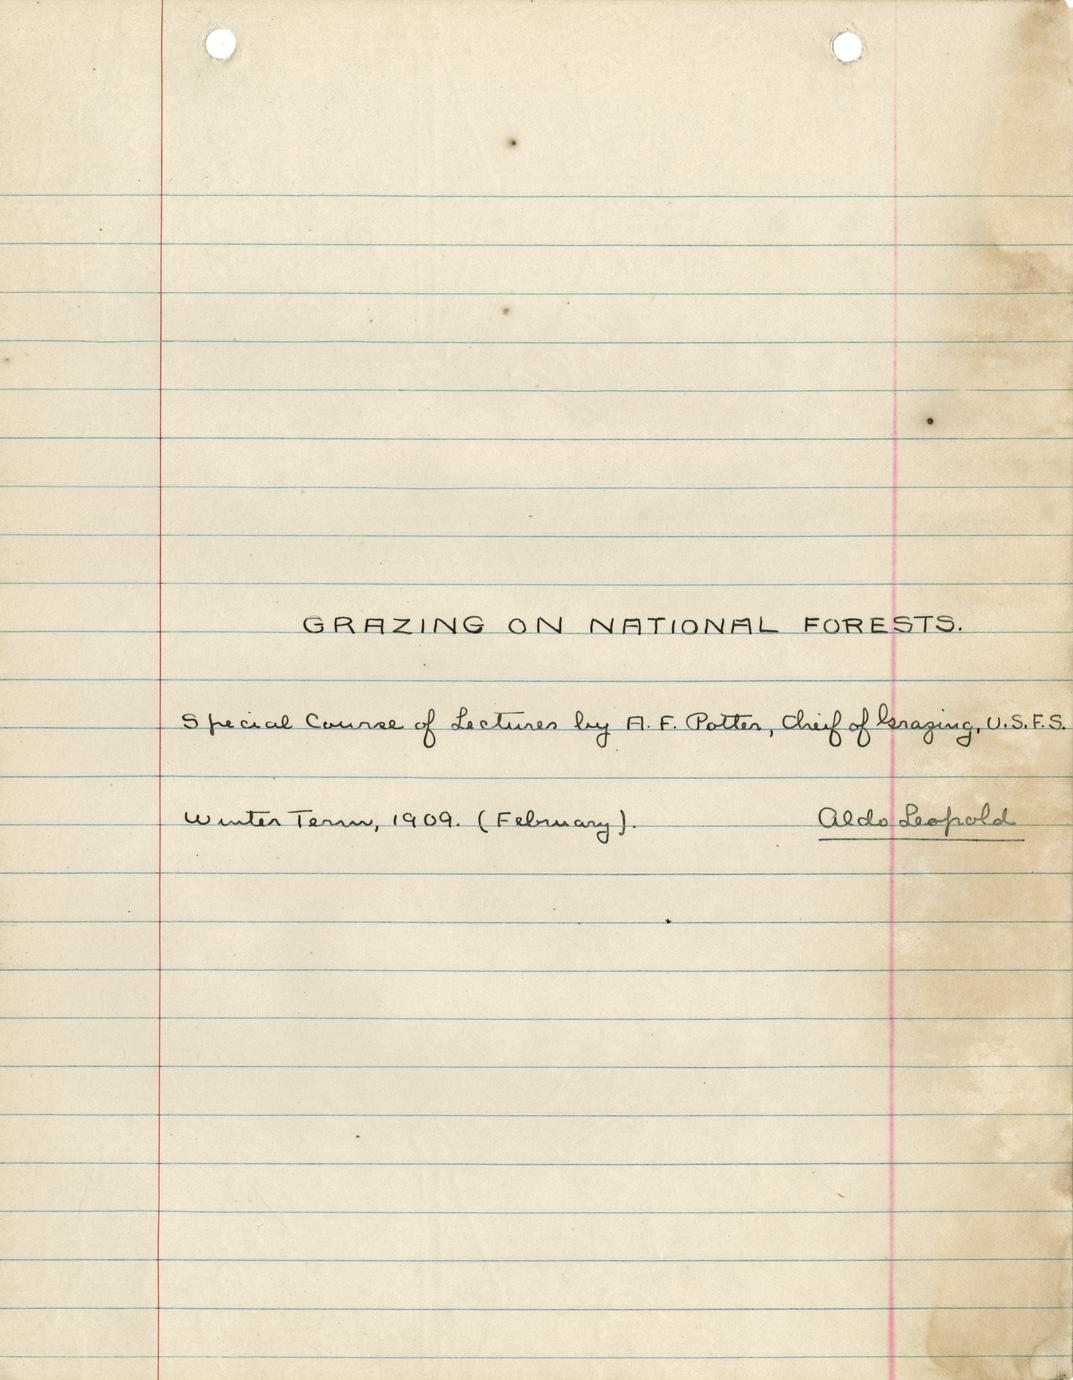 GRAZING ON NATIONAL FORESTS.
Special Course of Lectures by A. F. Potter, Cheif of Grazing, U.S.F.S.
Winter Term, 1909. (February).    Aldo Leopold